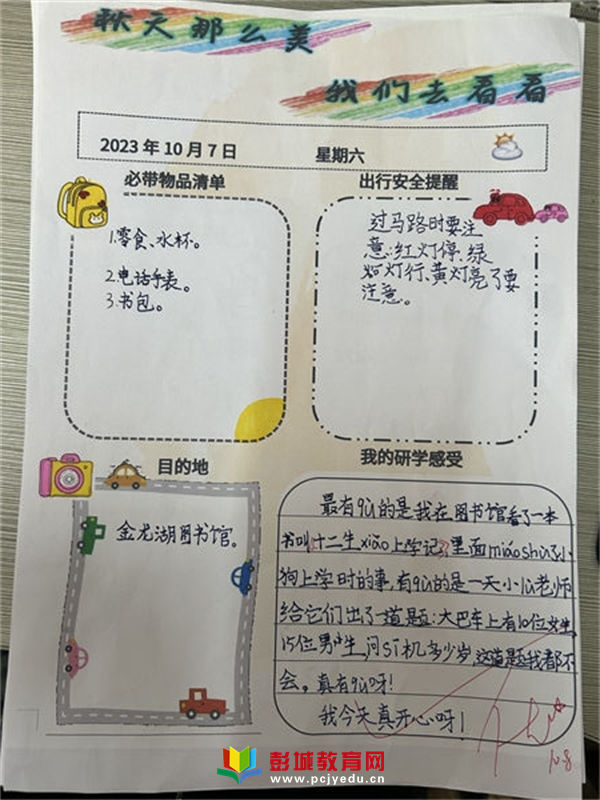 秋天那么美
我们去看看
2023年10月7日 星期六
必带物品清单
1.零食、水杯。
2.电话手表。
3.书包。
出行安全提醒
过马路时要注
意:红灯停、绿
灯行、黄灯亮了要
注意。
目的地
金龙湖图书馆。
我的研学感受
最有qù的是我在图书馆看了一本
书叫《十二生xiào上学记》里面miáoshù了小
狗上学时的事,有qù的是一天小 老师
给它们出了一道题:大巴车上有10位女生,
15位男生,问sī机多少岁,这道题我都不
会。真有qù呀!
我今天真开心呀!
10.8
彭城教育网
www.pcjyedu.cn